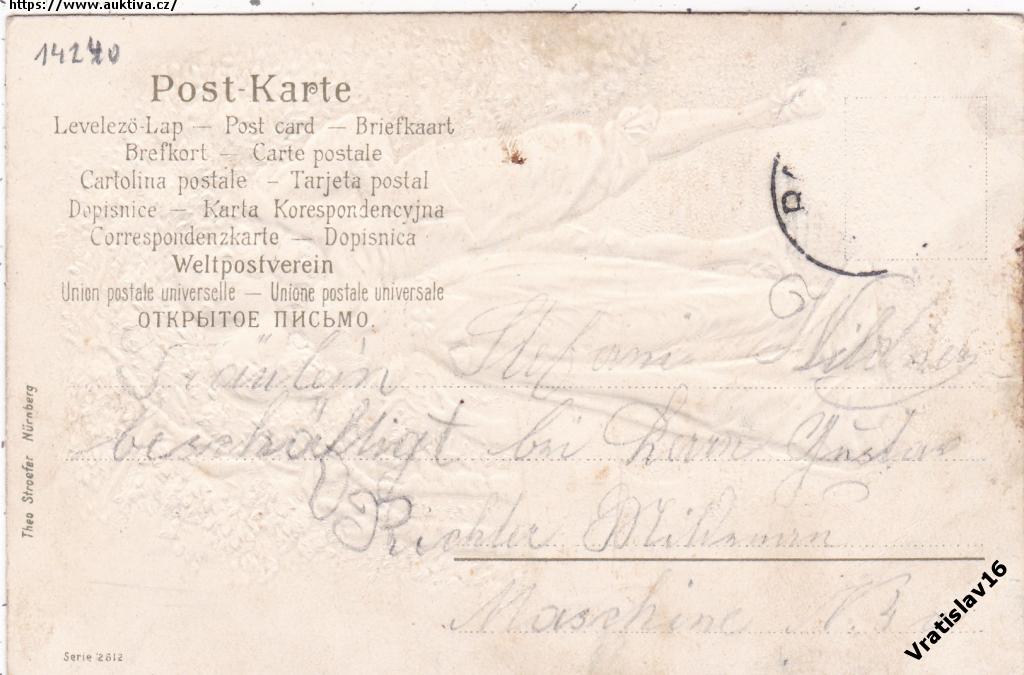 https://www.auktiva.cz/
14240
Post-Karte
Levelező-Lap — Post card — Briefkaart
Brefkort — Carte postale
Cartolina postale — Tarjeta postal
Dopisnice — Karta Korespondencyjna
Correspondenzkarte — Dopisnica
Weltpostverein
Union postale universelle — Unione postale universale
ОТКРЫТОЕ ПИСЬМО.
Fräulein Stefanie
beschäftigt bei Herrn Gustav
Richter
Maschine N.
Theo Stroefer Nürnberg
Serie 2612
Vratislav16